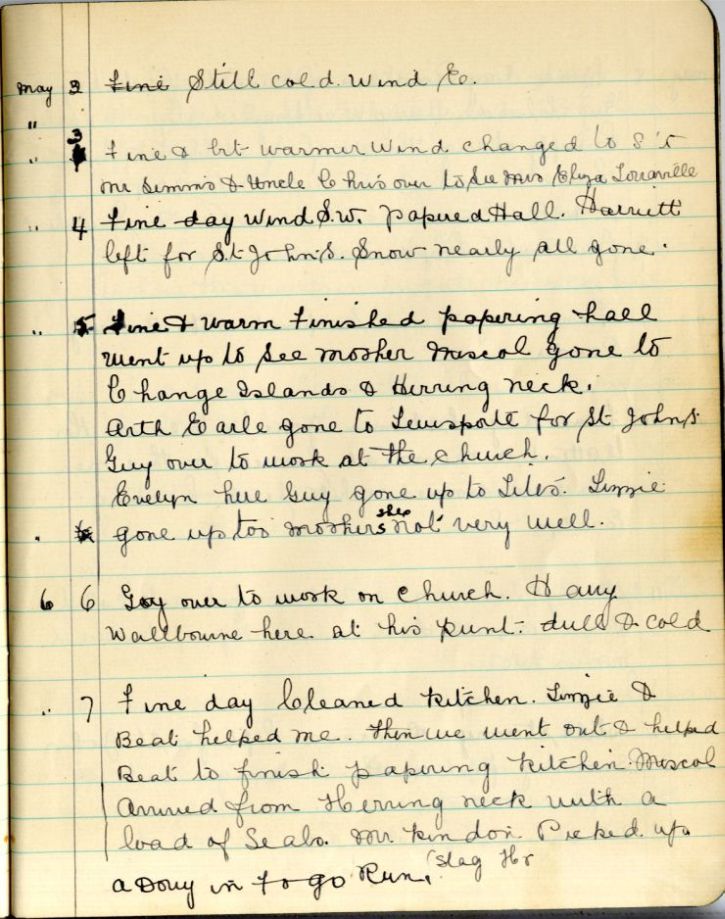 May 2 Fine Still cold. Wind E.
"
" 3 Fine & bit warmer Wind changed to S
Mr Simms & Uncle Chris over to see Mrs Eliza
" 4 Fine day Wind S.W. papered Hall. Harriett
left for St. John's. Snow nearly all gone.
" 5 Fine & warm Finished papering hall
went up to see mother Miscol gone to
Change Islands & Herring neck.
Arth Earle gone to Lewisporte for St Johns
Guy over to work at the church.
Evelyn here Guy gone up to Lizzie
gone up too Mothers shes not very well.
6 6 Guy over to work on church. Harry
Wallbourne here at his punt. dull & cold
" 7 Fine day Cleaned kitchen. Lizzie &
Beat helped me. then we went out & helped
Beat to finish papering kitchen. Miscol
Arrived from Herring neck with a
load of Seals. Mr Kindon. Picked up
a Dory in to go Run, Stag Hr